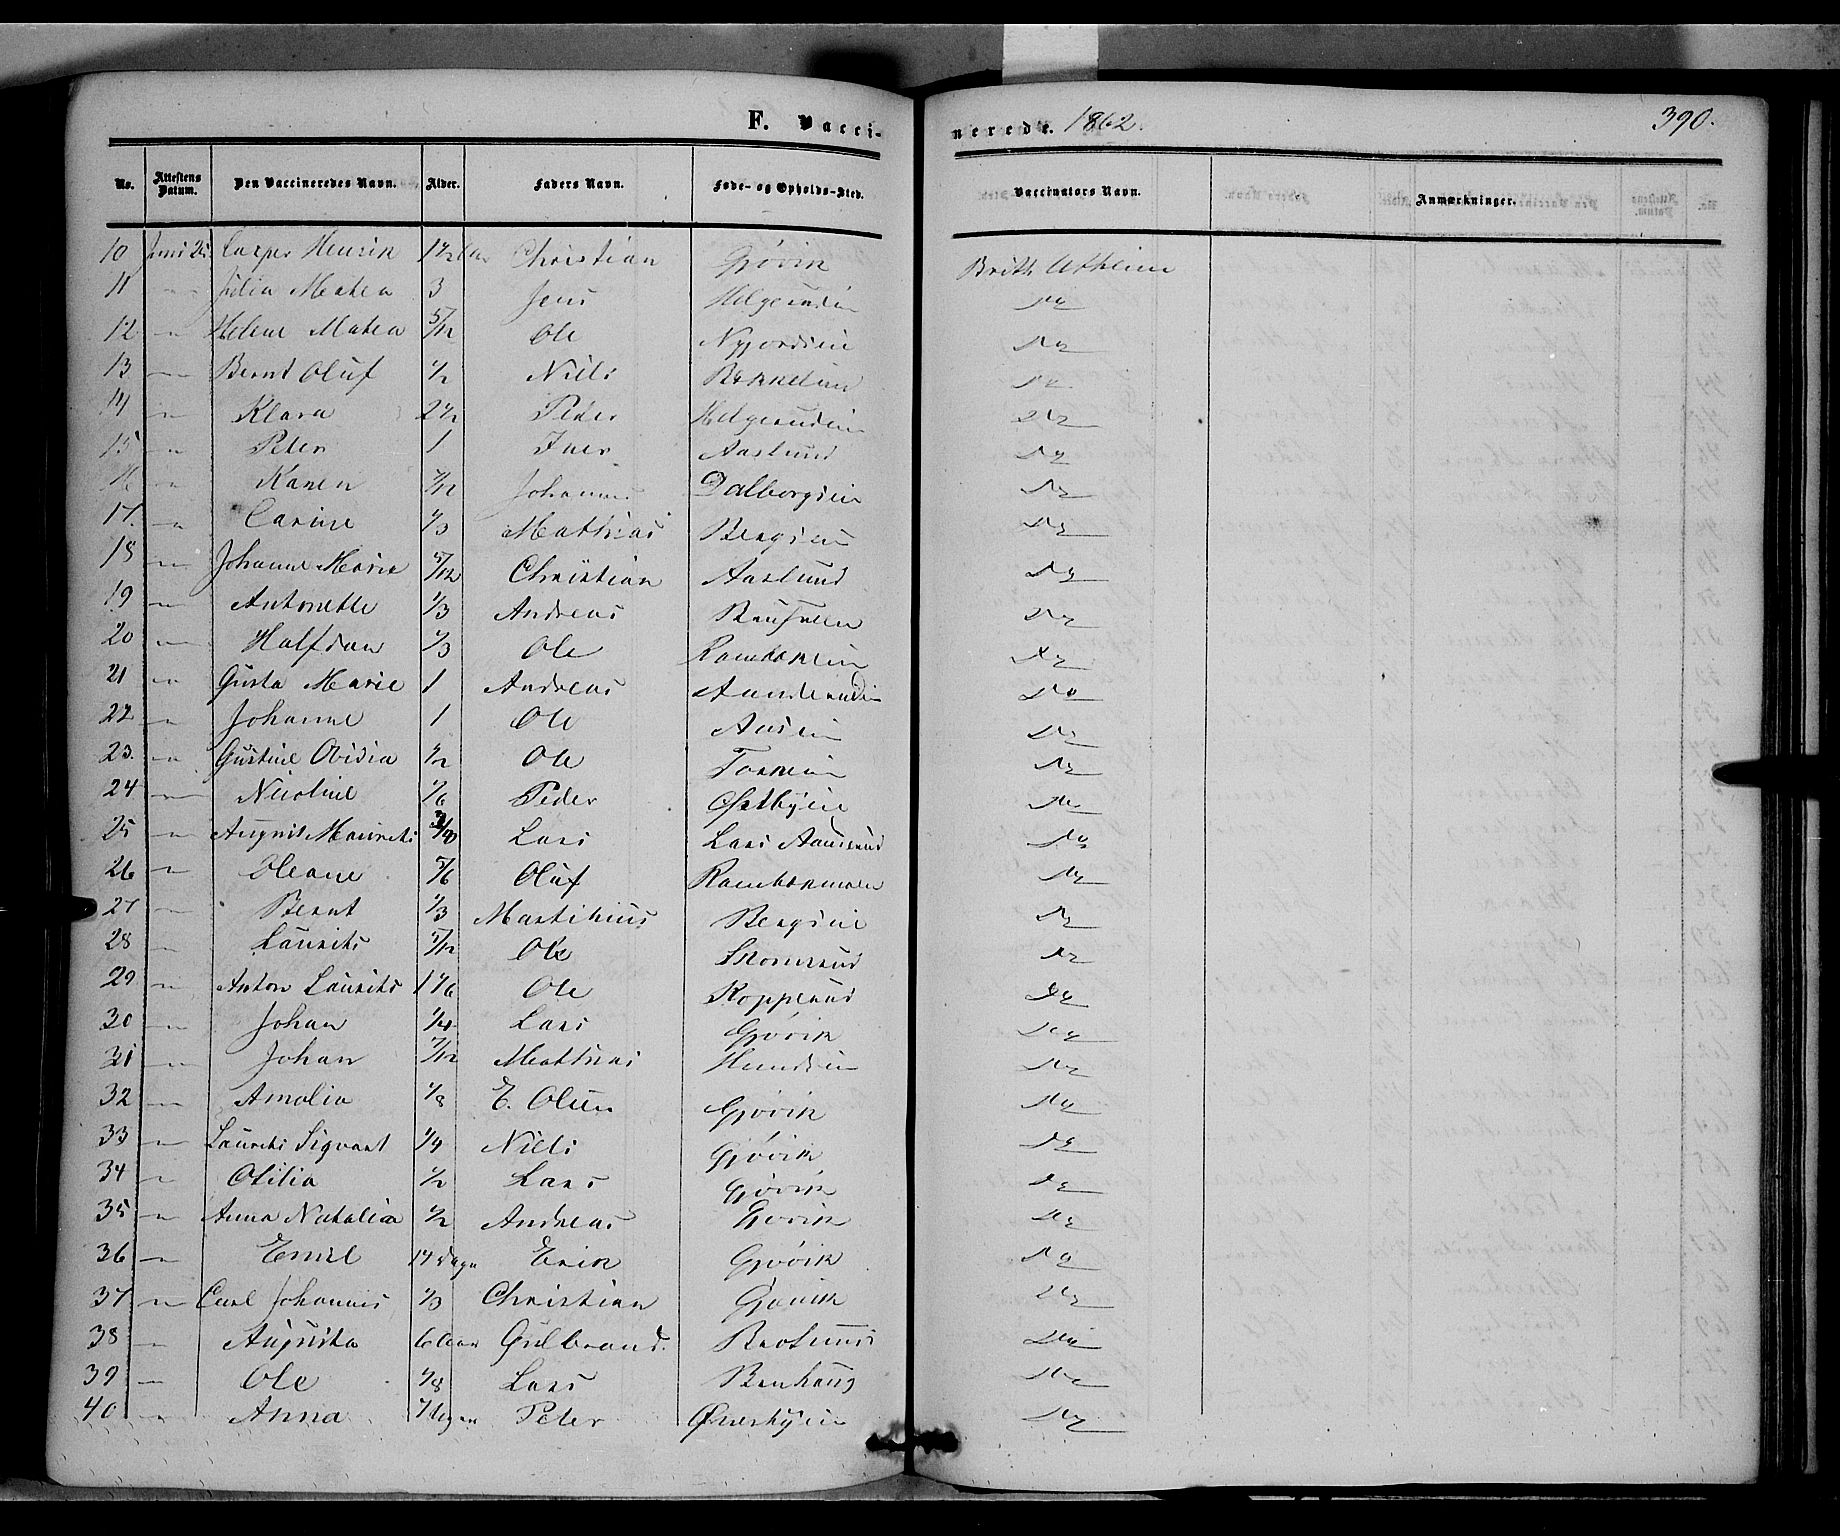 F. Vacci-
nerede. 1862.
390.
No. Attestens Datum. Den Vaccineredes Navn. Alder. Faders Navn. Føde- og Opholds-Sted. Vaccinators Navn. Anmærkninger.
10 Juni 25 Casper Henrik 1 1/2 Aar Christian Gjøvik Brith Utheim
11 " Julia Mathea 3 Jens Helgerudein Do
12 " Helene Mathea 5/12 Ole Nyjordein Do
13 " Bernt Oluf 1/2 Niels Bekkelien Do
14 " Klara 2 1/2 Peder Helgerudein Do
15 " Peter 1 Iver Aaslund Do
16 " Karen 7/12 Johannes Dalborgsein Do
17. " Carine 1/3 Mathias Bergsein Do
18 " Johanne Marie 5/12 Christian Aaslund Do
19 " Antonette 1/3 Andreas Do
20 " Halfdan 1/3 Ole Do
21 " Gusta Marie 1 Andreas Do
22 " Johanne 1 Ole Aasein Do
23. " Gustine Ovidia 1/2 Ole Do
24 " Nicoline 1/6 Peder Østbyein Do
25 " August Maurits Lars Lars Do
26 " Oleane 5/6 Oluf Do
27 " Bernt 1/3 Martinius Bergsein Do
28 " Laurits 5/12 Ole Do
29 " Anton Laurits 1 1/6 Ole Kopperud Do
30 " Johan 1/4 Lars Gjøvik Do
31 " Johan 7/12 Mathias Hundsein Do
32 " Amalia 1/8 E. Olsen Gjøvik Do
33 " Laurits Sigvart 1/4 Niels Gjøvik Do
34 " Otilia 1/2 Lars Gjøvik Do
35 " Anna Natalia 1/2 Andreas Gjøvik Do
36 " Emil 14 Dage Erik Gjøvik Do
37 " Carl Johannes 1/3 Christian Gjøvik Do
38 " Augusta 6 Aar Gulbrand. Do
39 " Ole 1/8 Lars Do
40 " Anna Peter Do